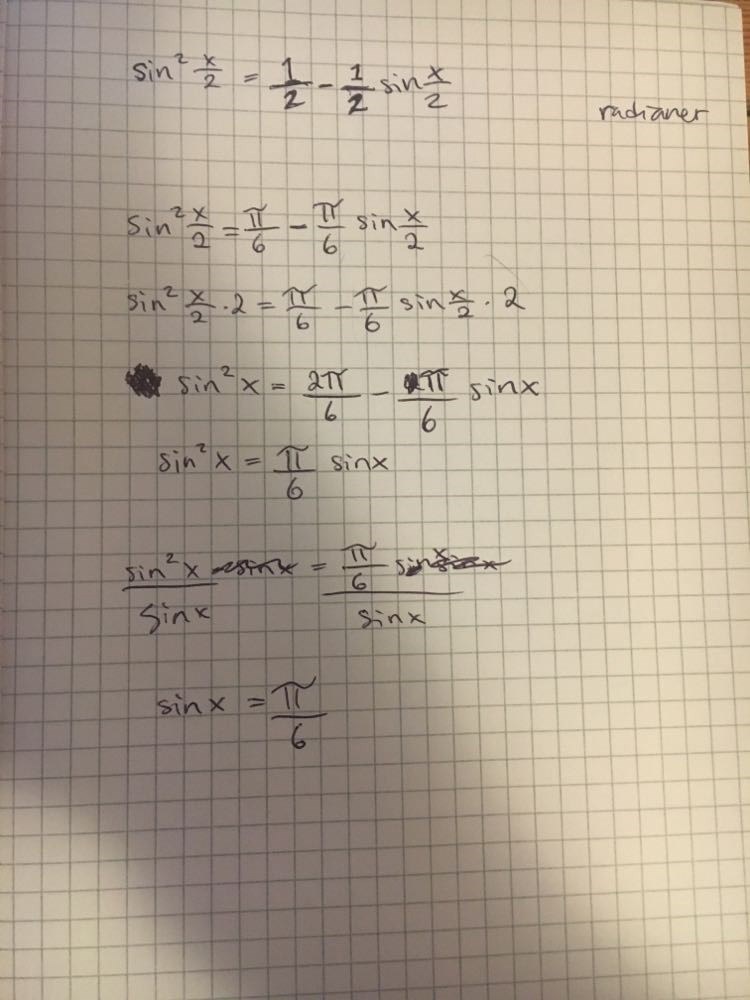 sin² x/2 = 1/2 - 1/2 sin x/2
radianer
sin² x/2 = π/6 - π/6 sin x/2
sin² x/2 · 2 = π/6 - π/6 sin x/2 · 2
sin² x = 2π/6 - π/6 sin x
sin² x = π/6 sin x
sin² x / sin x = π/6 / sin x
sin x = π/6